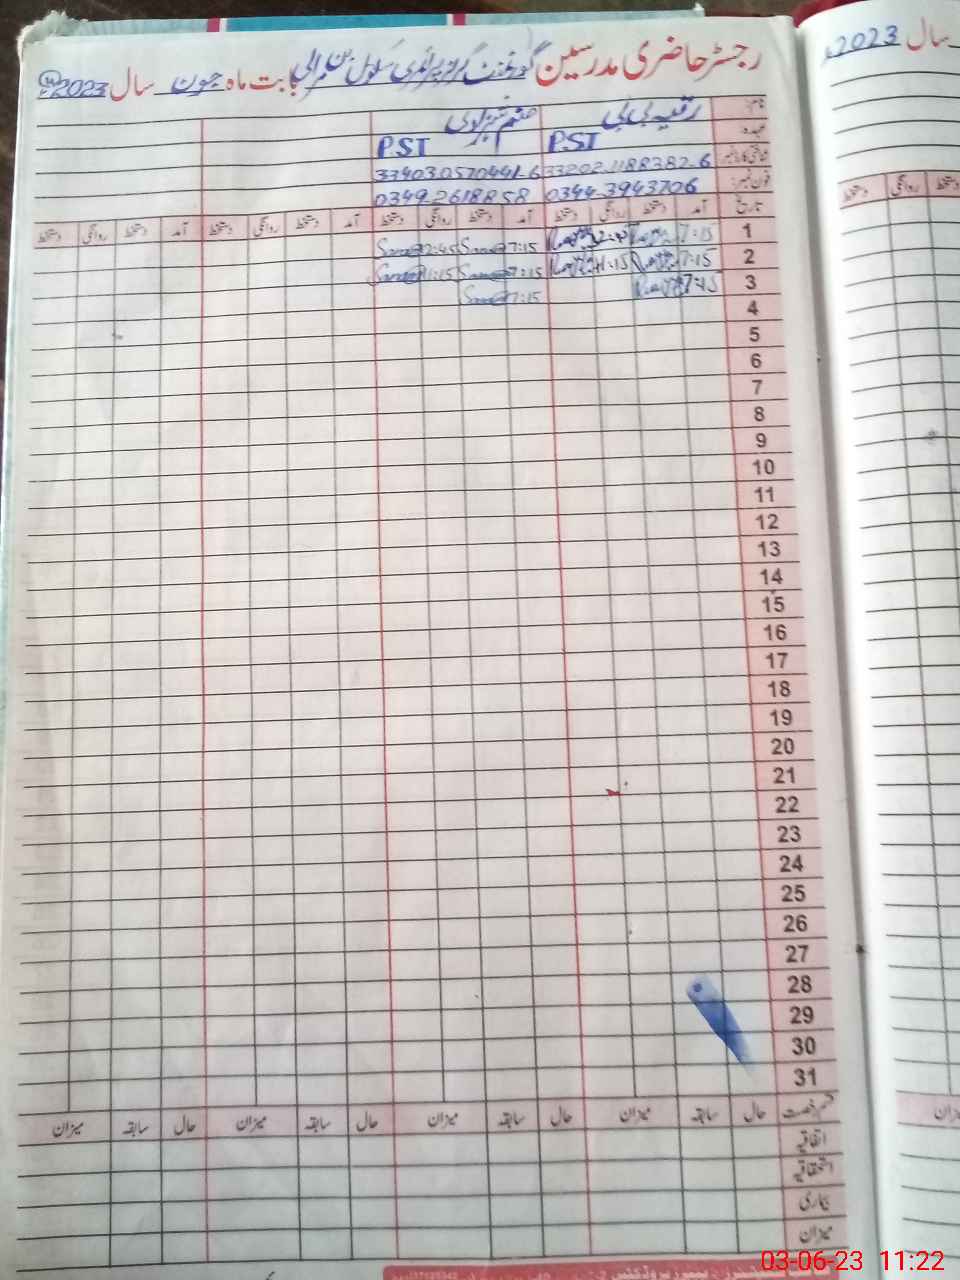 رجسٹر حاضری مدرسین گورنمنٹ گرلز پرائمری سکول بابت ماہ جون سال 2023
سال 2023
نام:
رقیہ بی بی
صنم
عہدہ:
PST
PST
شناختی کارڈ نمبر:
33202.1188382-6
334030570441-6
فون نمبر:
0344-3943706
0349-2618858
تاریخ آمد دستخط روانگی دستخط آمد دستخط روانگی دستخط آمد دستخط روانگی دستخط آمد دستخط روانگی دستخط
دستخط روانگی دستخط
1 7:15 7:15 12:45
2 7:15 11:15 7:15 11:15
3 7:15 7:15
4
5
6
7
8
9
10
11
12
13
14
15
16
17
18
19
20
21
22
23
24
25
26
27
28
29
30
31
قسم رخصت حال سابقہ میزان حال سابقہ میزان حال سابقہ میزان حال سابقہ میزان
اتفاقیہ
استحقاقیہ
بیماری
میزان
03-06-23 11:22